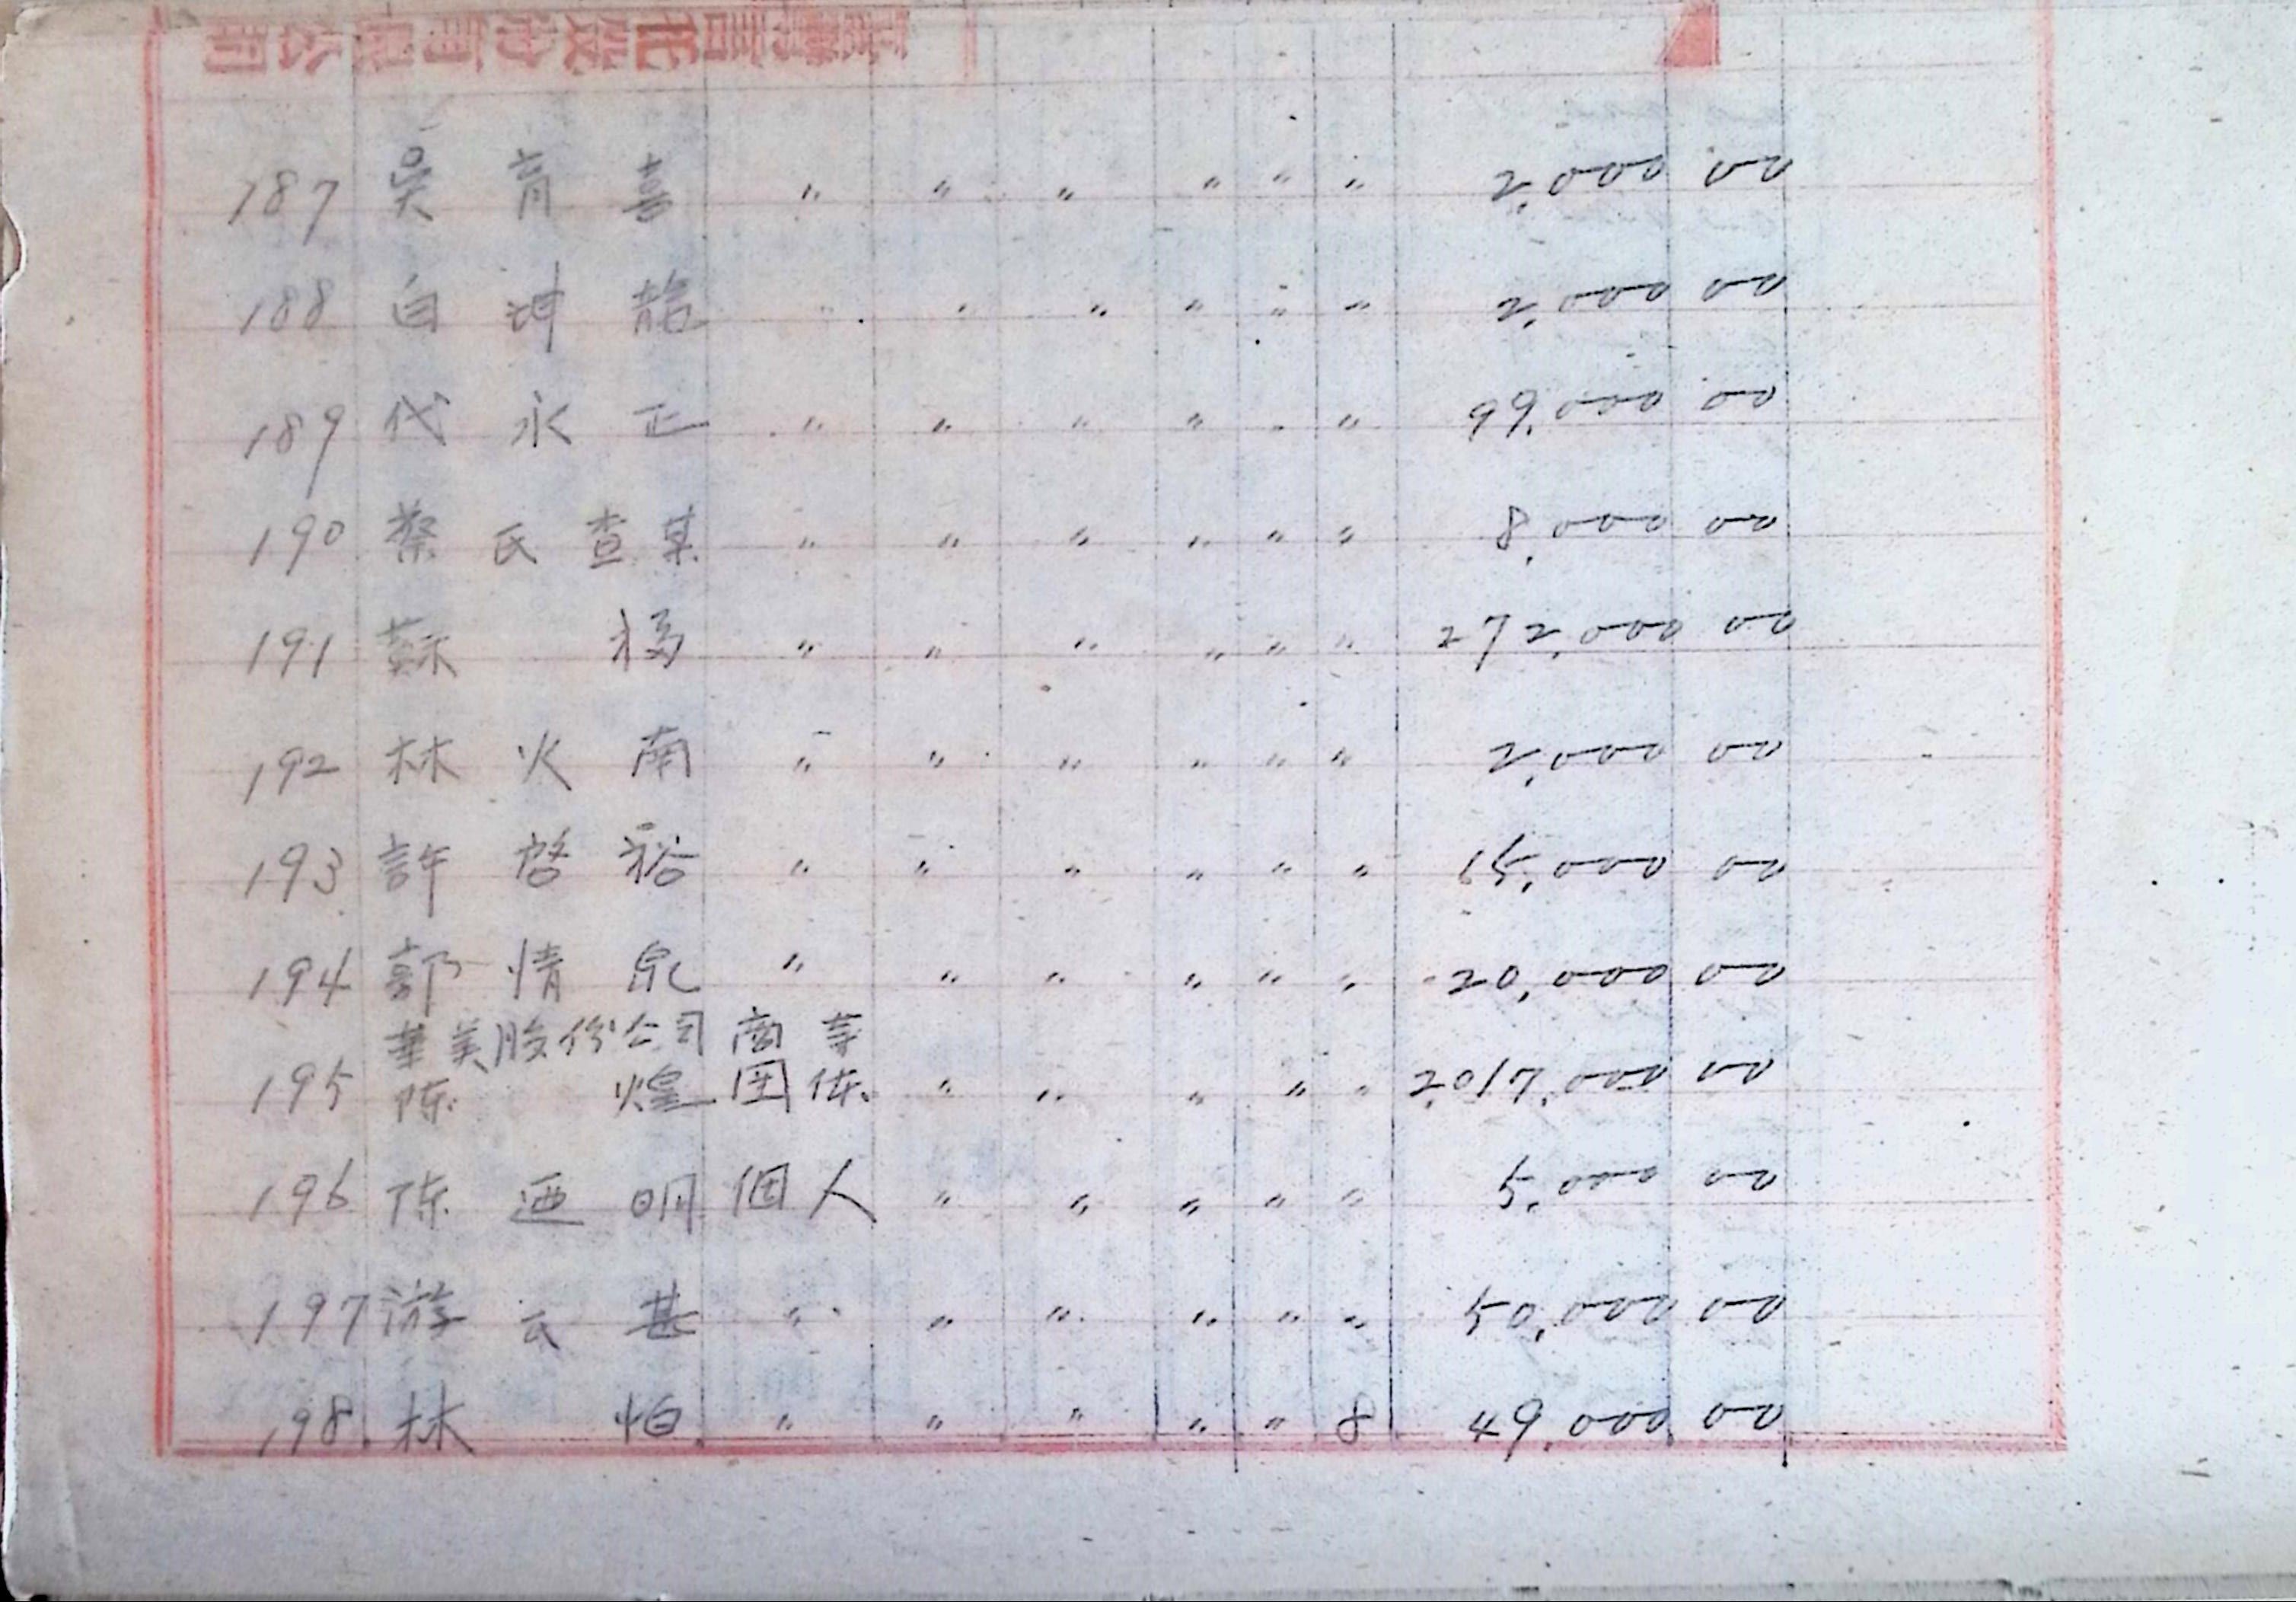 187 吳育喜 〃 〃 〃 〃 〃 〃 2,000 00
188 白坤龍 〃 〃 〃 〃 〃 〃 2,000 00
189 代永正 〃 〃 〃 〃 〃 〃 99,000 00
190 蔡氏查某 〃 〃 〃 〃 〃 〃 8,000 00
191 蘇 〃 〃 〃 〃 〃 〃 272,000 00
192 林火南 〃 〃 〃 〃 〃 〃 2,000 00
193 許啓裕 〃 〃 〃 〃 〃 〃 15,000 00
194 郭情泉 〃 〃 〃 〃 〃 〃 20,000 00
華美股份公司 商業
195 陈煌 团体 〃 〃 〃 〃 〃 00
196 陈迺明 個人 〃 〃 〃 〃 〃 5,000 00
197 游云甚 〃 〃 〃 〃 〃 〃 50,000 00
198 林怕 〃 〃 〃 〃 〃 8 49,000 00